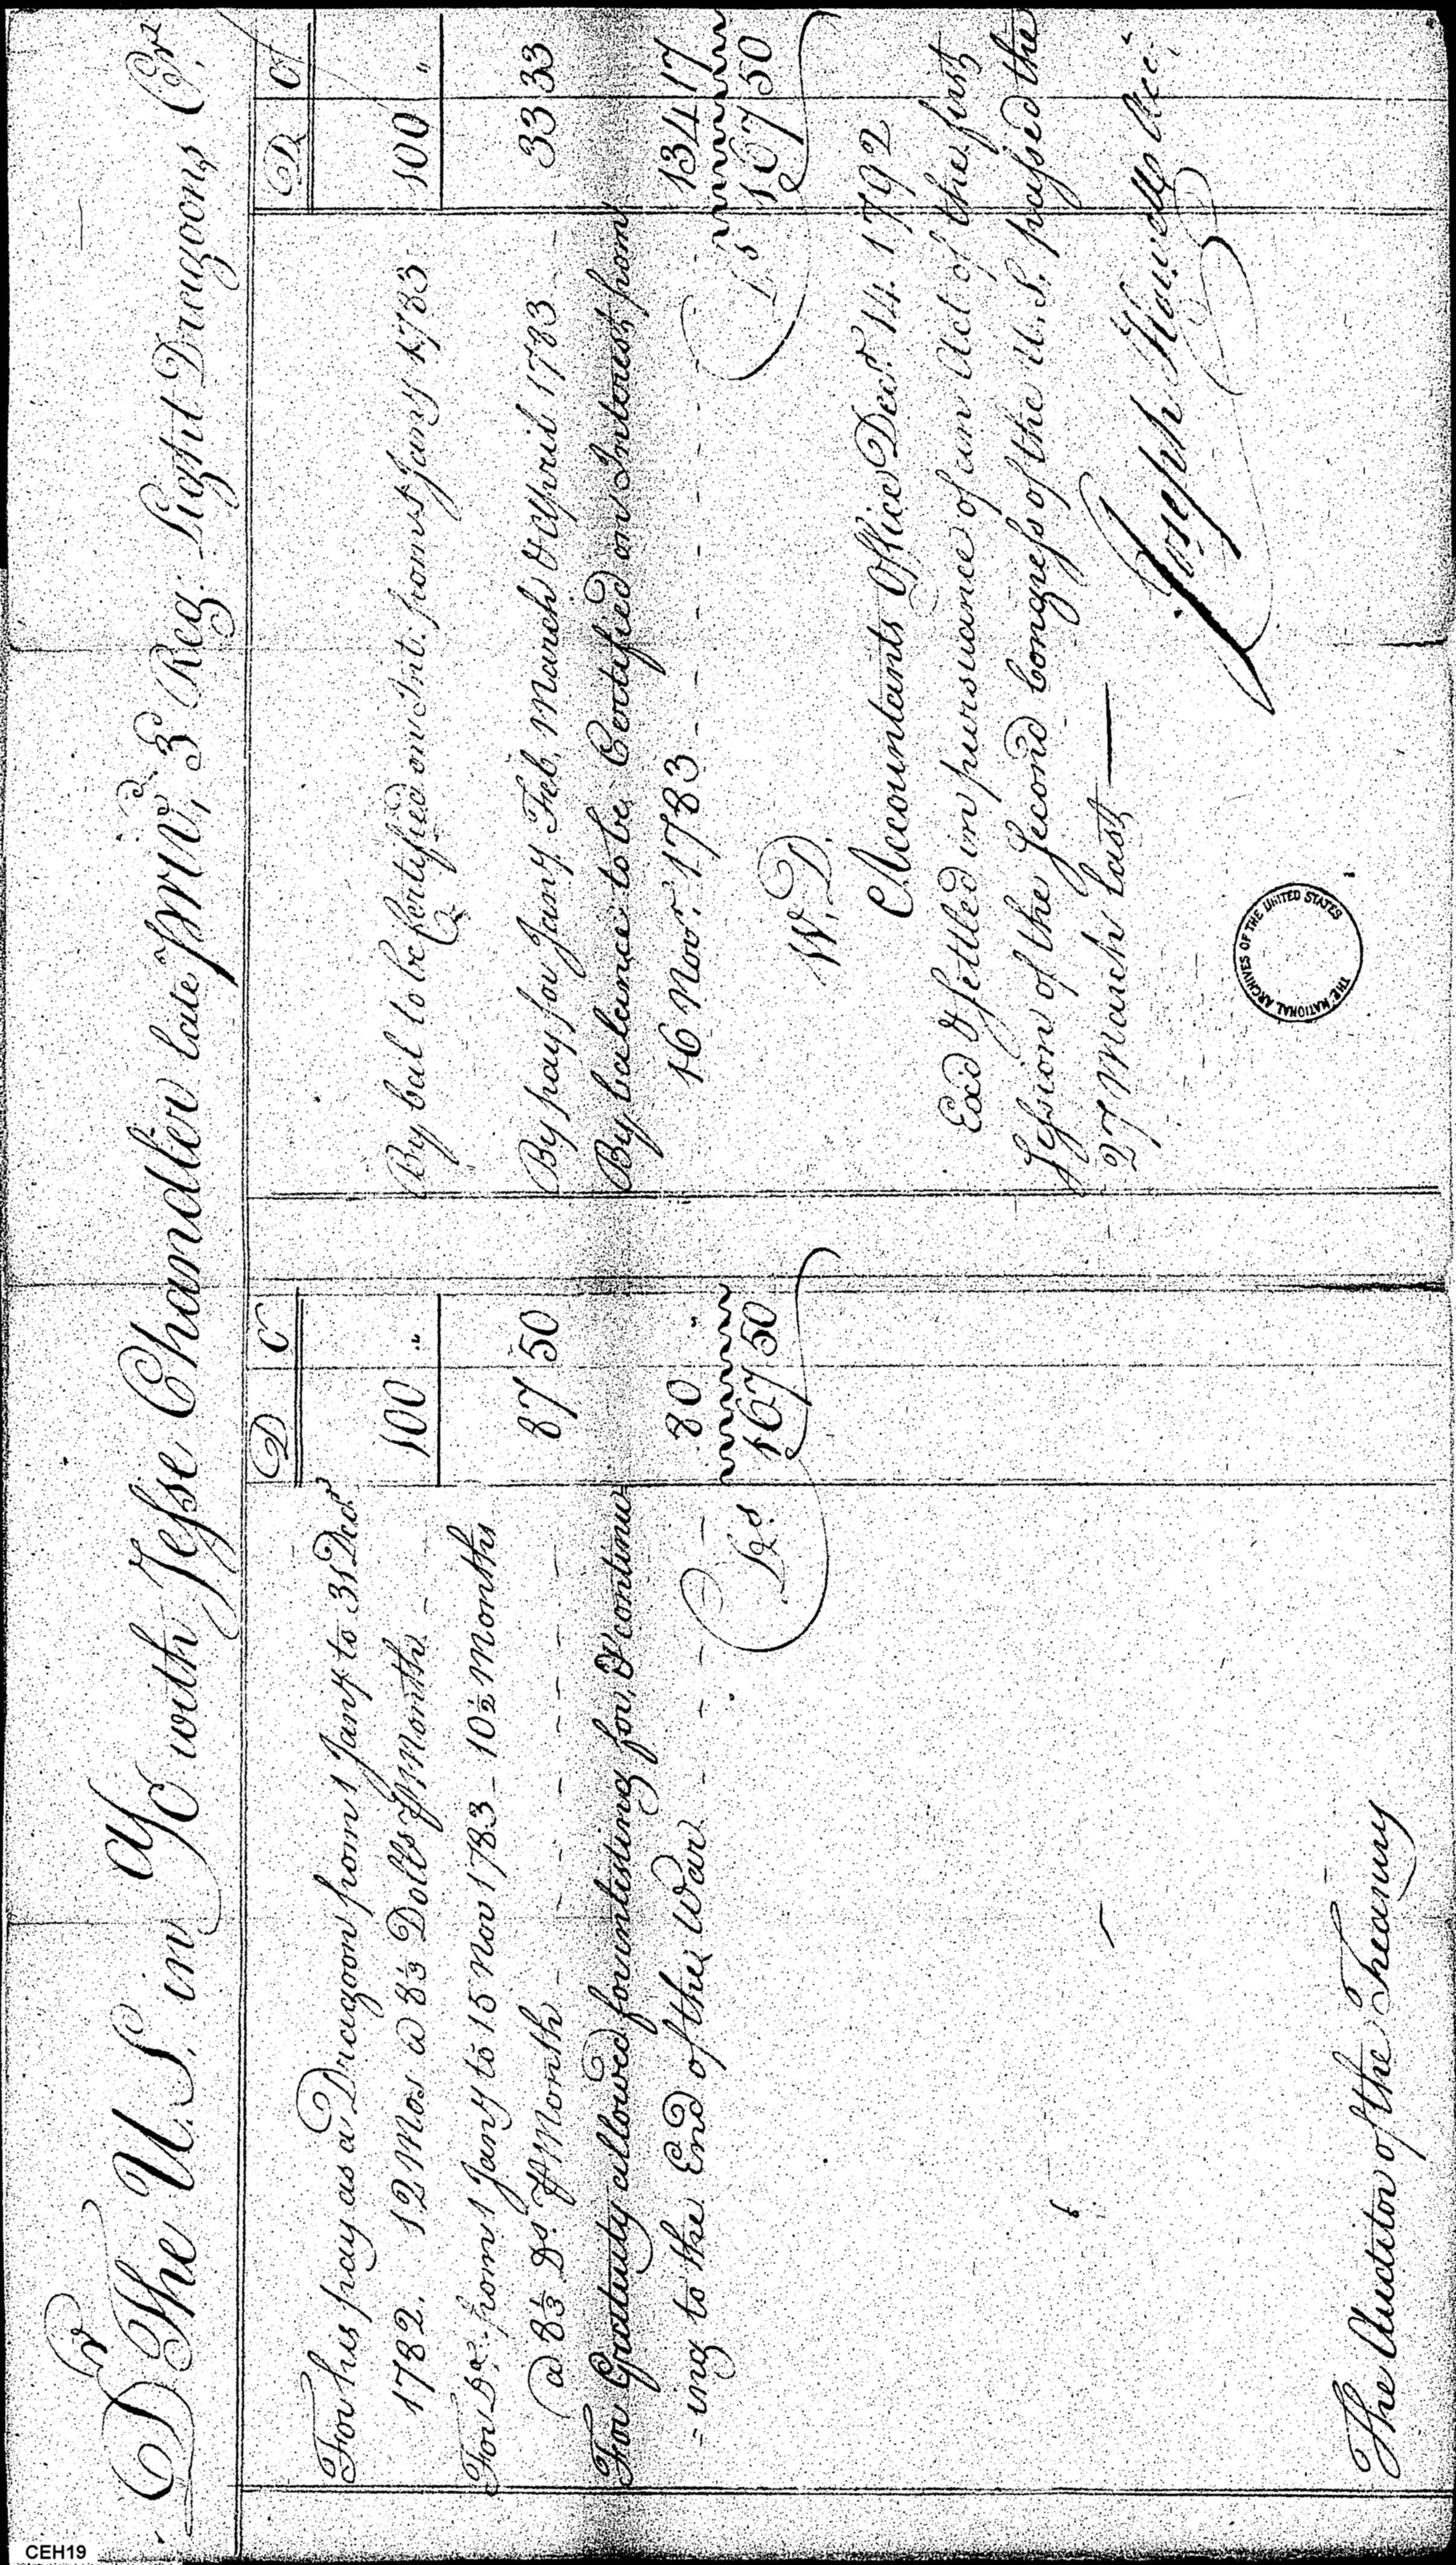 Dr The U.S. in A/c with Jesse Chandler late Prvt, 3d Reg. Light Dragoons Cr
D C
For his pay as a Dragoon from 1 Jany to 31 Decr
1782. 12 Mos @ 8⅓ Dolls ⅌ Month - 100 "
For Do. from 1 Jany to 15 Nov 1783 - 10½ Months
@ 8⅓ Ds. ⅌ Month - - - - - - 87 50
For Gratuity allowed for inlisting for, & continu
= ing to the End of the War - - - 80 "
Drs 167 50
The Auditor of the Treasury
D C
By bal to be Certified on Int: from 1 Jany 1783 100 "
By pay for Jany Feb, March & April 1783 - - 33 33
By balance to be Certified on Interest from
16 Novr. 1783 - - - - - - 134 17
Ds 167 50
W. D.
Accountants Office Decr 14. 1792
Exd & Settled in pursuance of an Act of the first
Session of the Second Congress of the U.S. passed the
27 March last —
Joseph Howell Acct
THE NATIONAL ARCHIVES OF THE UNITED STATES
CEH19